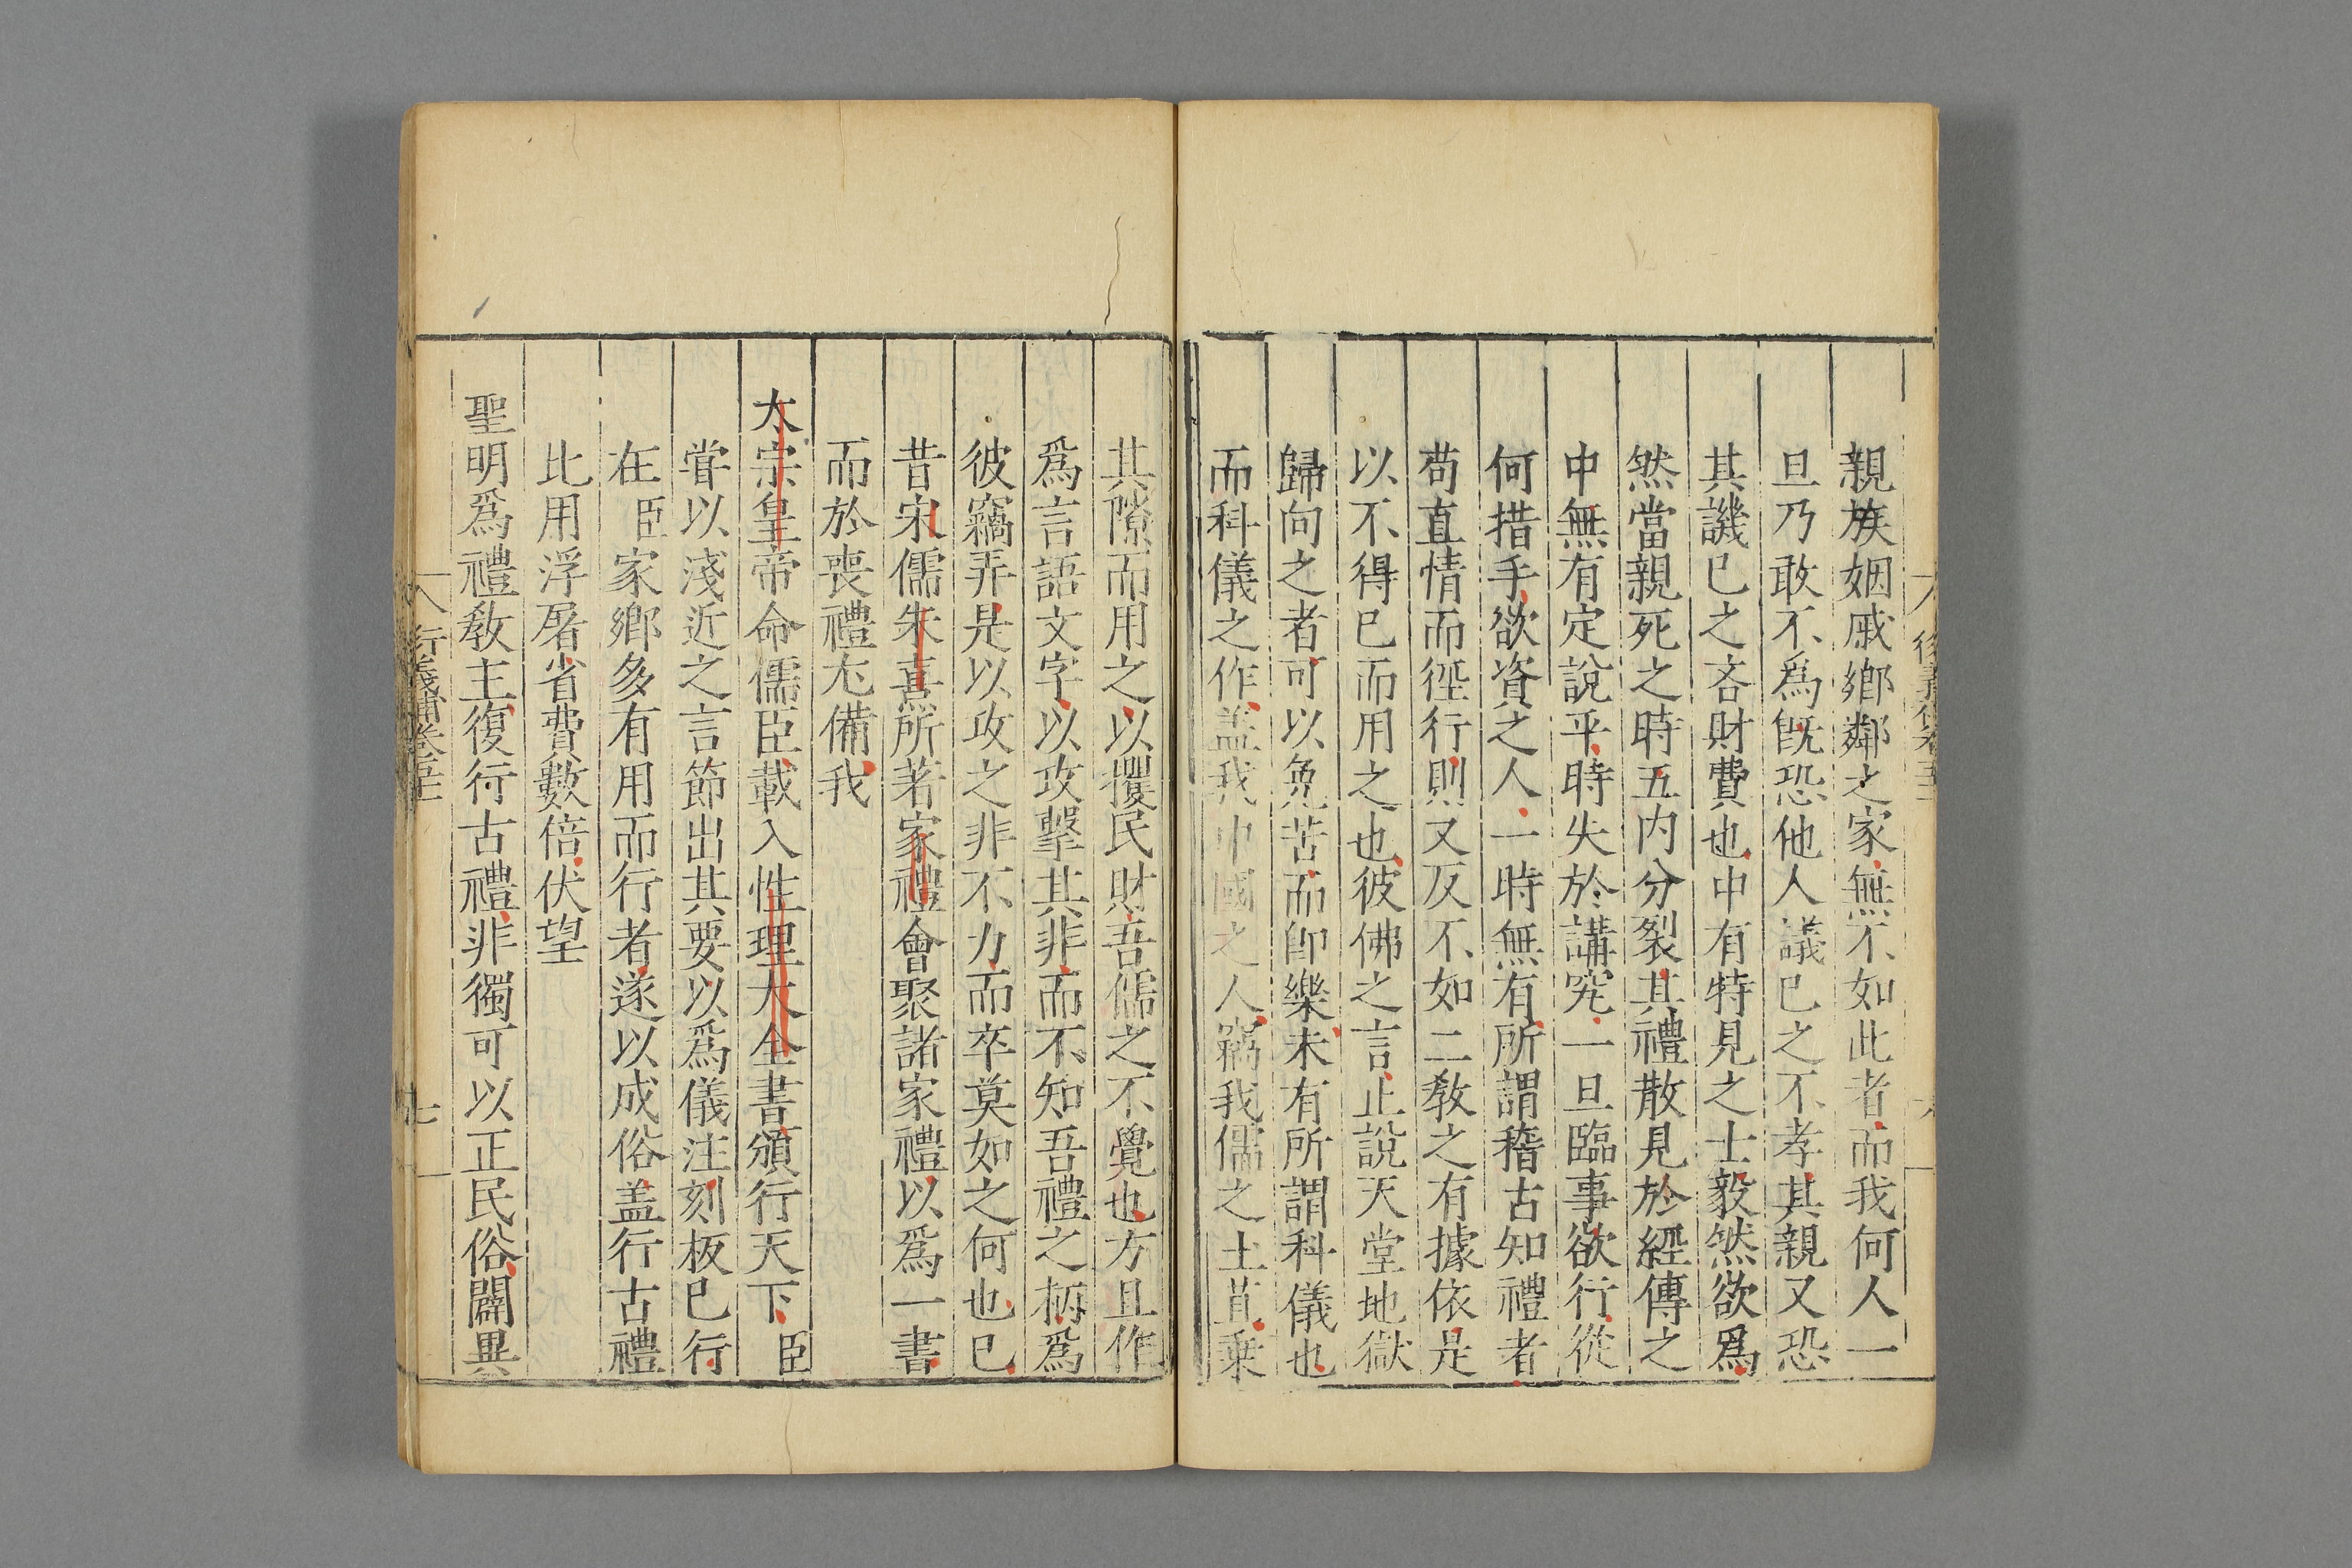 親族姻戚鄉鄰之家無不如此者而我何人一
旦乃敢不爲旣恐他人議巳之不孝其親又恐
其譏巳之吝財費也中有特見之士毅然欲爲
然當親死之時五內分裂其禮散見於經傳之
中無有定說平時失於講究一旦臨事欲行從
何措手欲資之人一時無有所謂稽古知禮者
苟直情而徑行則又反不如二教之有據依是
以不得巳而用之也彼佛之言止說天堂地獄
歸向之者可以免苦而卽樂未有所謂科儀也
而科儀之作盖我中國之人竊我儒之土苴乗
其隙而用之以攫民財吾儒之不覺也方且作
爲言語文字以攻擊其非而不知吾禮之柄爲
彼竊弄是以攻之非不力而卒莫如之何也巳
昔宋儒朱熹所著家禮會聚諸家禮以爲一書
而於喪禮尢備我
太宗皇帝命儒臣載入性理大全書頒行天下臣
甞以淺近之言節出其要以爲儀注刻板巳行
在臣家鄉多有用而行者遂以成俗盖行古禮
比用浮屠省費數倍伏望
聖明爲禮教主復行古禮非獨可以正民俗闢異
行義補卷五十一 七